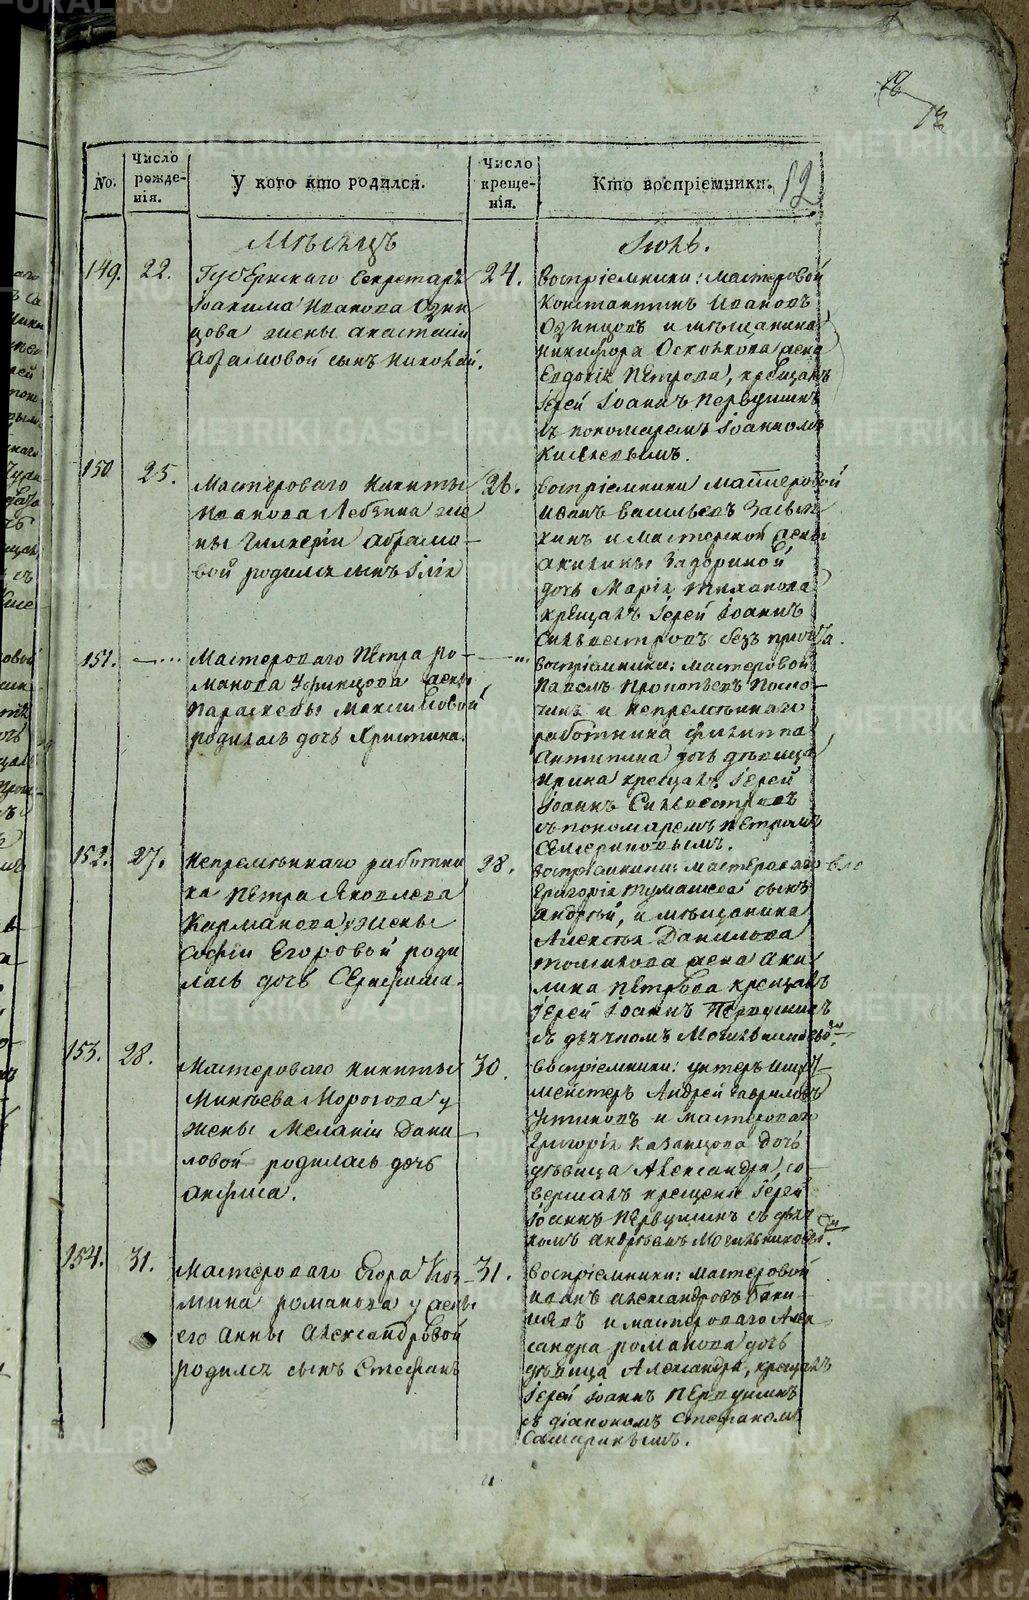 12
No.
Число рожде-нія.
У кого кто родился.
Число креще-нія.
Кто воспріемники.
Мѣсяцъ
Іюль.
149.
22.
Губернскаго Секретаря
Іоакима Иванова Один
цова жены Анастасіи
Абрамовой сынъ Николай.
24.
Воспріемники: мастеровой
Константинъ Ивановъ
Одинцовъ и мѣщанина
Никифора Осколкова жена
Евдокія Петрова, крещалъ
Іерей Іоаннъ Первушинъ
съ пономаремъ Іоанномъ
150
25.
Мастероваго Никиты
Иванова Лебкина же
ны Гликеріи Абрамо-
вой родился сынъ Илія
26.
воспріемники мастеровой
Иванъ Васильевъ
и мастеровой жены
Акилины Задориной
дочь Марія
крещалъ Іерей Іоаннъ
Сильвестровъ безъ причта.
151.
Мастероваго Петра Ро-
манова жены
Параскевы Максимовой
родилась дочь Христина.
воспріемники: мастеровой
Павелъ Прокопьевъ
и непремѣннаго
работника Филиппа
Антипина дочь дѣвица
Ирина крещалъ Іерей
Іоаннъ Сильвестровъ
съ пономаремъ Петромъ
152.
27.
Непремѣннаго работни
ка Петра Яковлева
Карманова у жены
Софіи Егоровой роди
лась дочь Серафима.
28.
воспріемники: мастероваго
Григорія Тумашева сынъ
Андрей, и мѣщанина
Алексѣя Данилова
жена Аки
лина Петрова крещалъ
Іерей Іоаннъ Первушинъ
съ дьячкомъ
153.
28.
Мастероваго Никиты
Минѣева Морозова у
жены Меланіи Дани
ловой родилась дочь
Анфиса.
30.
воспріемники: унтеръ шихт
мейстеръ Андрей Гавриловъ
и мастероваго
Григорія Казанцова дочь
дѣвица Александра, со-
вершалъ крещеніе Іерей
Іоаннъ Первушинъ съ дьяч
комъ Андреемъ Могильниковы.
154.
31.
Мастероваго Егора Коз
мина Романова у жены
его Анны Александровой
родился сынъ Стефанъ
31.
воспріемники: мастеровой
Иванъ Александровъ
и мастероваго Алек
сандра Романова дочь
дѣвица Александра, крещалъ
Іерей Іоаннъ Первушинъ
съ діакономъ Стефаномъ
Самаринымъ.
METRIKI.GASO-URAL.RU